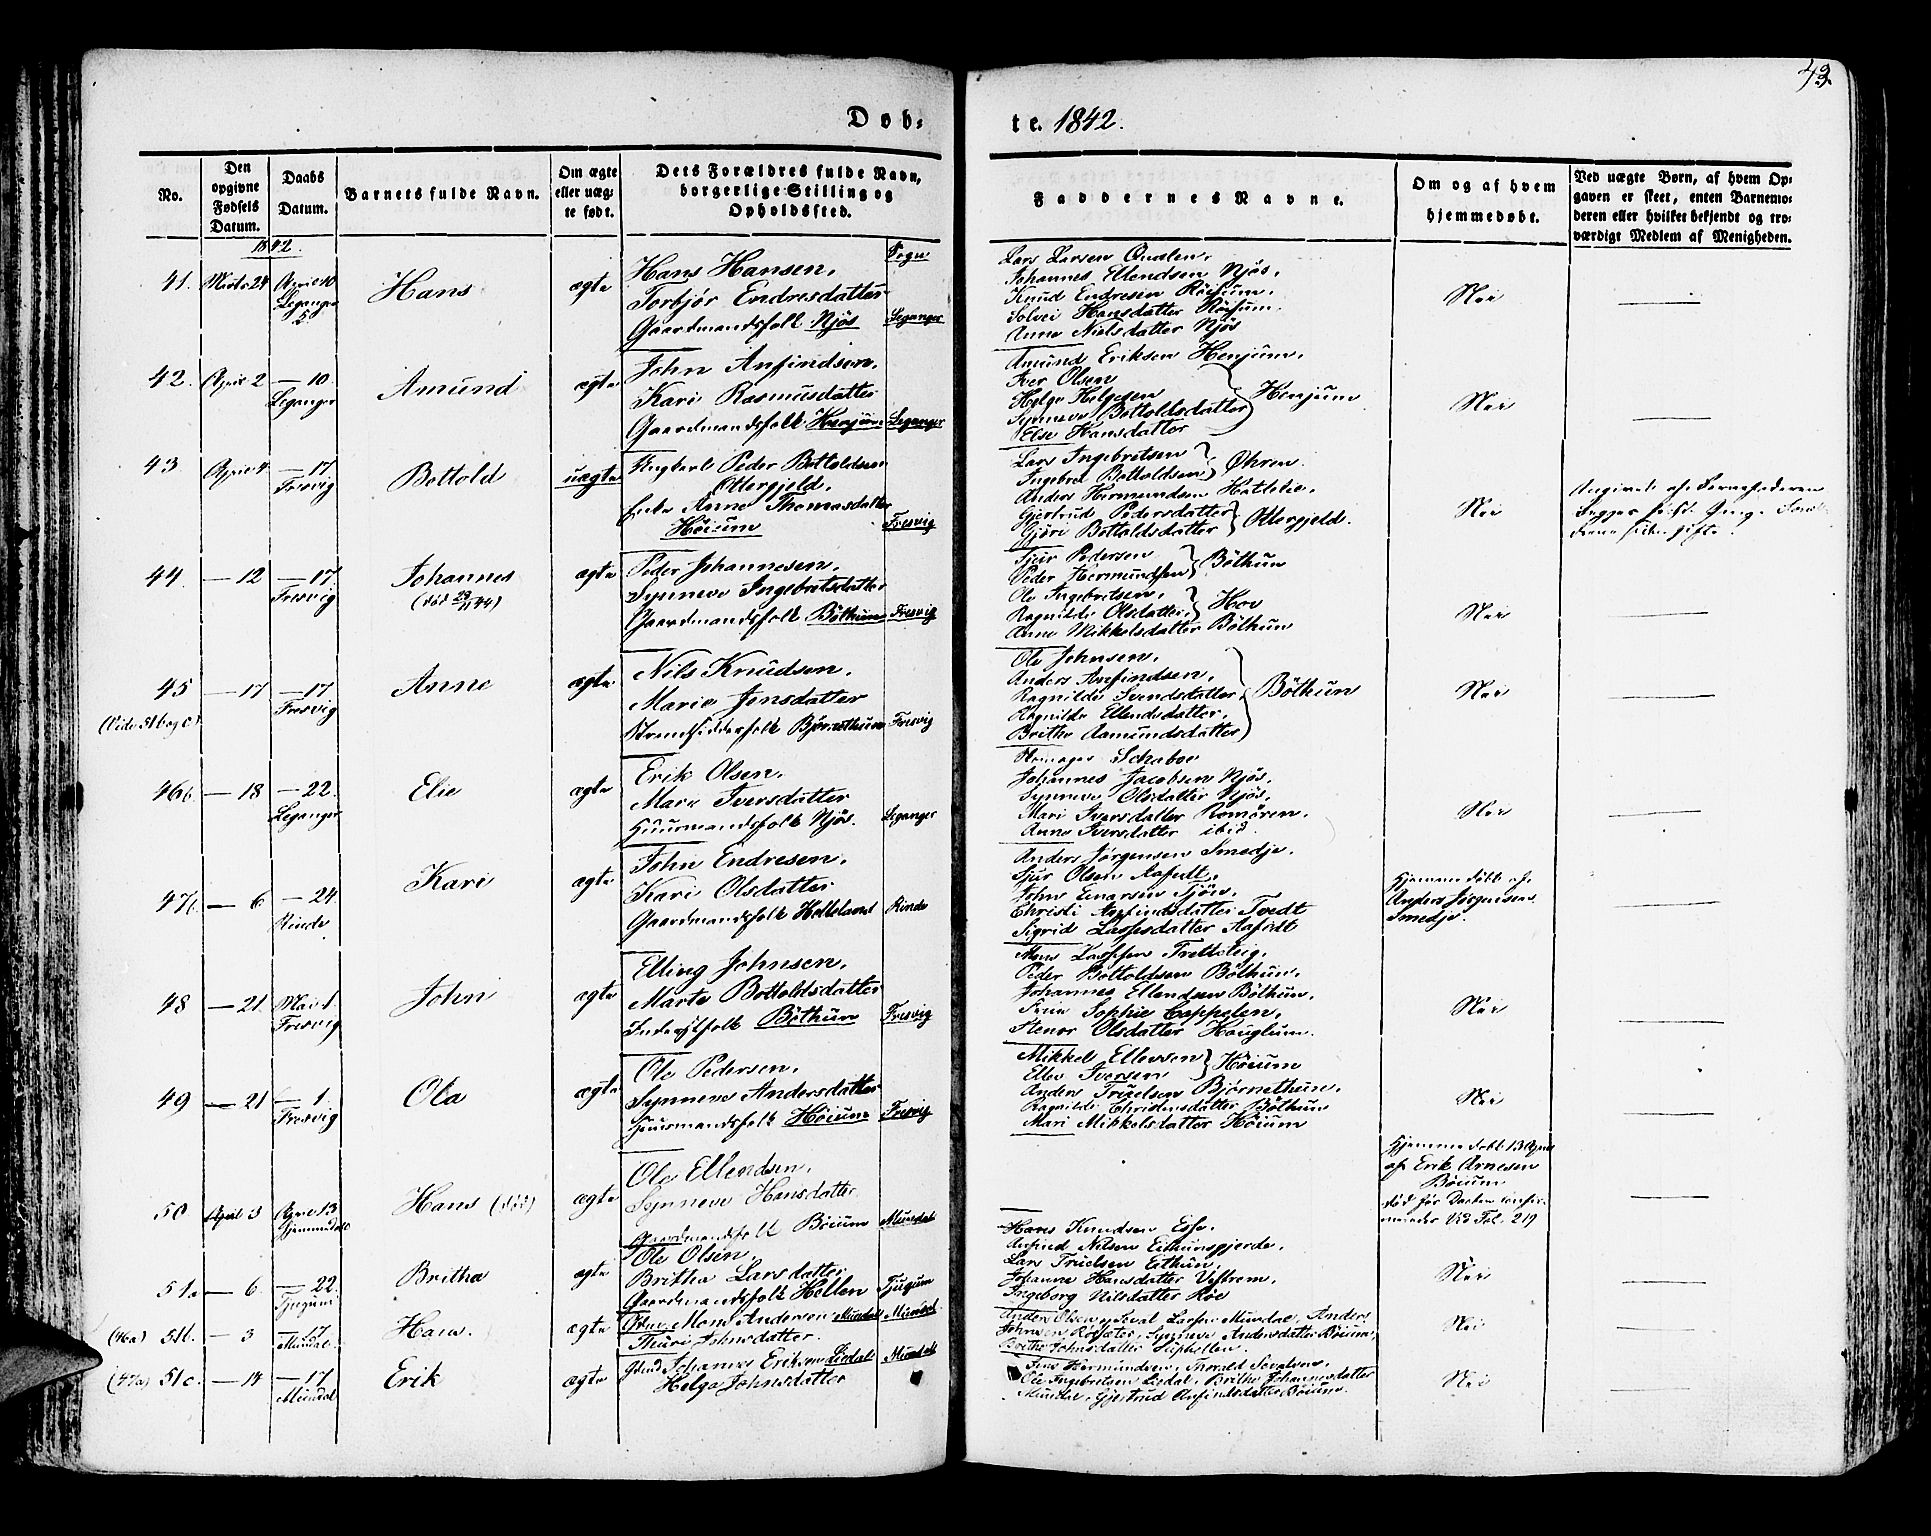 43
Døb-
te. 1842.
No.
Den opgivne Fødsels Datum.
Daabs Datum.
Barnets fulde Navn.
Om ægte eller uægte født.
Dets Forældres fulde Navn, borgerlige Stilling og Opholdssted.
Faddernes Navne.
Om og af hvem hjemmedøbt.
Ved uægte Børn, af hvem Opgaven er skeet, enten Barnemoderen eller hvilket bekjendt og troværdigt Medlem af Menigheden.
1842.
Sogn
41. Marts 24 April 10 Leganger Hans ægte
Hans Hansen,
Torbjør Endresdatter
Gaardmandsfolk Njøs Leganger
Lars Larsen Qvalen,
Johannes Ellendsen Njøs,
Knud Endresen Röisum,
Solvei Hansdatter Röisum.
Anne Nielsdatter Njös
Nei
42. April 2 — 10. Leganger Amund ægte
John Anfindsen,
Kari Rasmusdatter
Gaardmandsfolk Henjum Leganger
Amund Eriksen Henjum,
Iver Olsen
Helge Helgesen
Synneve Bottoldsdatter
Else Hansdatter
Henjum
Nei
43 April 4 — 17. Fresvig Bottold uægte
Ungkarl Peder Bottoldsen
Ottergjeld,
Enke Anne Thomasdatter
Höium Fresvig
Lars Ingebretsen
Ingebret Bottoldsen
Øhren.
Anders Hermundsen Hatlelie,
Gjertrud Pedersdatter
Gjöri Bottoldsdatter
Ottergjeld.
Nei
Angivet af Barnefaderen
44. — 12 — 17. Fresvig Johannes ægte
(død 29/11 44)
Peder Johannesen,
Synneve Ingebretsdatter
Gaardmandsfolk Böthun Fresvig
Sjur Pedersen
Peder Hermundsen
Böthun
Ole Ingebretsen,
Ragnilde Olsdatter,
Hov
Anne Mikkelsdatter Böthun
Nei
45 — 17 — 17 Fresvig Anne ægte
Nils Knudsen,
Marie Jonsdatter
Strandsidderfolk Bjørnethun Fresvig
Ole Johnsen,
Anders Anfindsen,
Ragnilde Svendsdatter
Ragnilde Ellendsdatter,
Brithe Aamundsdatter
Böthun
Nei
46b. — 18 — 22. Leganger Elie ægte
Erik Olsen,
Mari Iversdatter
Huusmandsfolk Njös. Leganger
Johannes Jacobsen Njös,
Synneve Olsdatter Njös,
Mari Iversdatter Romören,
Anne Iversdatter ibid.
Nei
47b. — 6 — 24. Rinde Kari ægte
John Endresen,
Kari Olsdatter
Gaardmandsfolk Helleland Rinde
Anders Jørgensen Smedje,
Sjur Olsen Aafedt,
John Einarsen Tjön,
Christi Anfindsdatter Tvedt
Sigrid Lassesdatter Aafedt
Hjemmedöbt af
Anders Jørgensen
Smedje.
48 — 21. Mai 1. Fresvig John ægte
Elling Johnsen,
Marte Bottoldsdatter
Inderstfolk Böthun Fresvig
Mons Lassesen Tretteteig,
Peder Bottoldsen Böthun,
Johannes Ellendsen Böthun,
Frue Sophie Cappelen,
Stenor Olsdatter Hauglum.
Nei
49 — 21 — 1. Fresvig Ola ægte
Ole Pedersen,
Synneve Andersdatter
Huusmandsfolk Höium Fresvig
Mikkel Ellevsen
Ellev Iversen
Höium
Anders Truelsen Bjørnethun,
Ragnilde Christensdatter Böthun
Mari Mikkelsdatter Höium
Nei
50 April 3 April 13 Hjemmedöbt Hans (død) ægte
Ole Ellendsen,
Synneve Hansdatter
Gaardmandsfolk Böium Mundal
Hjemmedöbt 13 April
af Erik Arnesen
Böium
død før Daaben confir-
meredes Vid Fol. 219
51a — 6 — 22. Tjugum Britha ægte
Ole Olsen,
Britha Larsdatter
Gaardmandsfolk Hellen Tjugum
Hans Knudsen Esse,
Anfind Nilsen Eithunsgjerde,
Lars Truelsen Eithun,
Johanne Hansdatter Vestrem,
Ingeborg Nilsdatter Röe
Nei
(46a) 51b. — 3 — 17 Mundal Hans. ægte
Mons Andersen Mundal Mundal
Thuri Johnsdatter.
Nei
(47a) 51c. — 14 — 17 Mundal Erik ægte
Johannes Eriksen Liedal Mundal
Helga Johnsdatter
Ole Ingebretsen Liedal, Brithe Johannesdatter
Mundal, Gjertrud Anfindsdatter Böium.
Nei